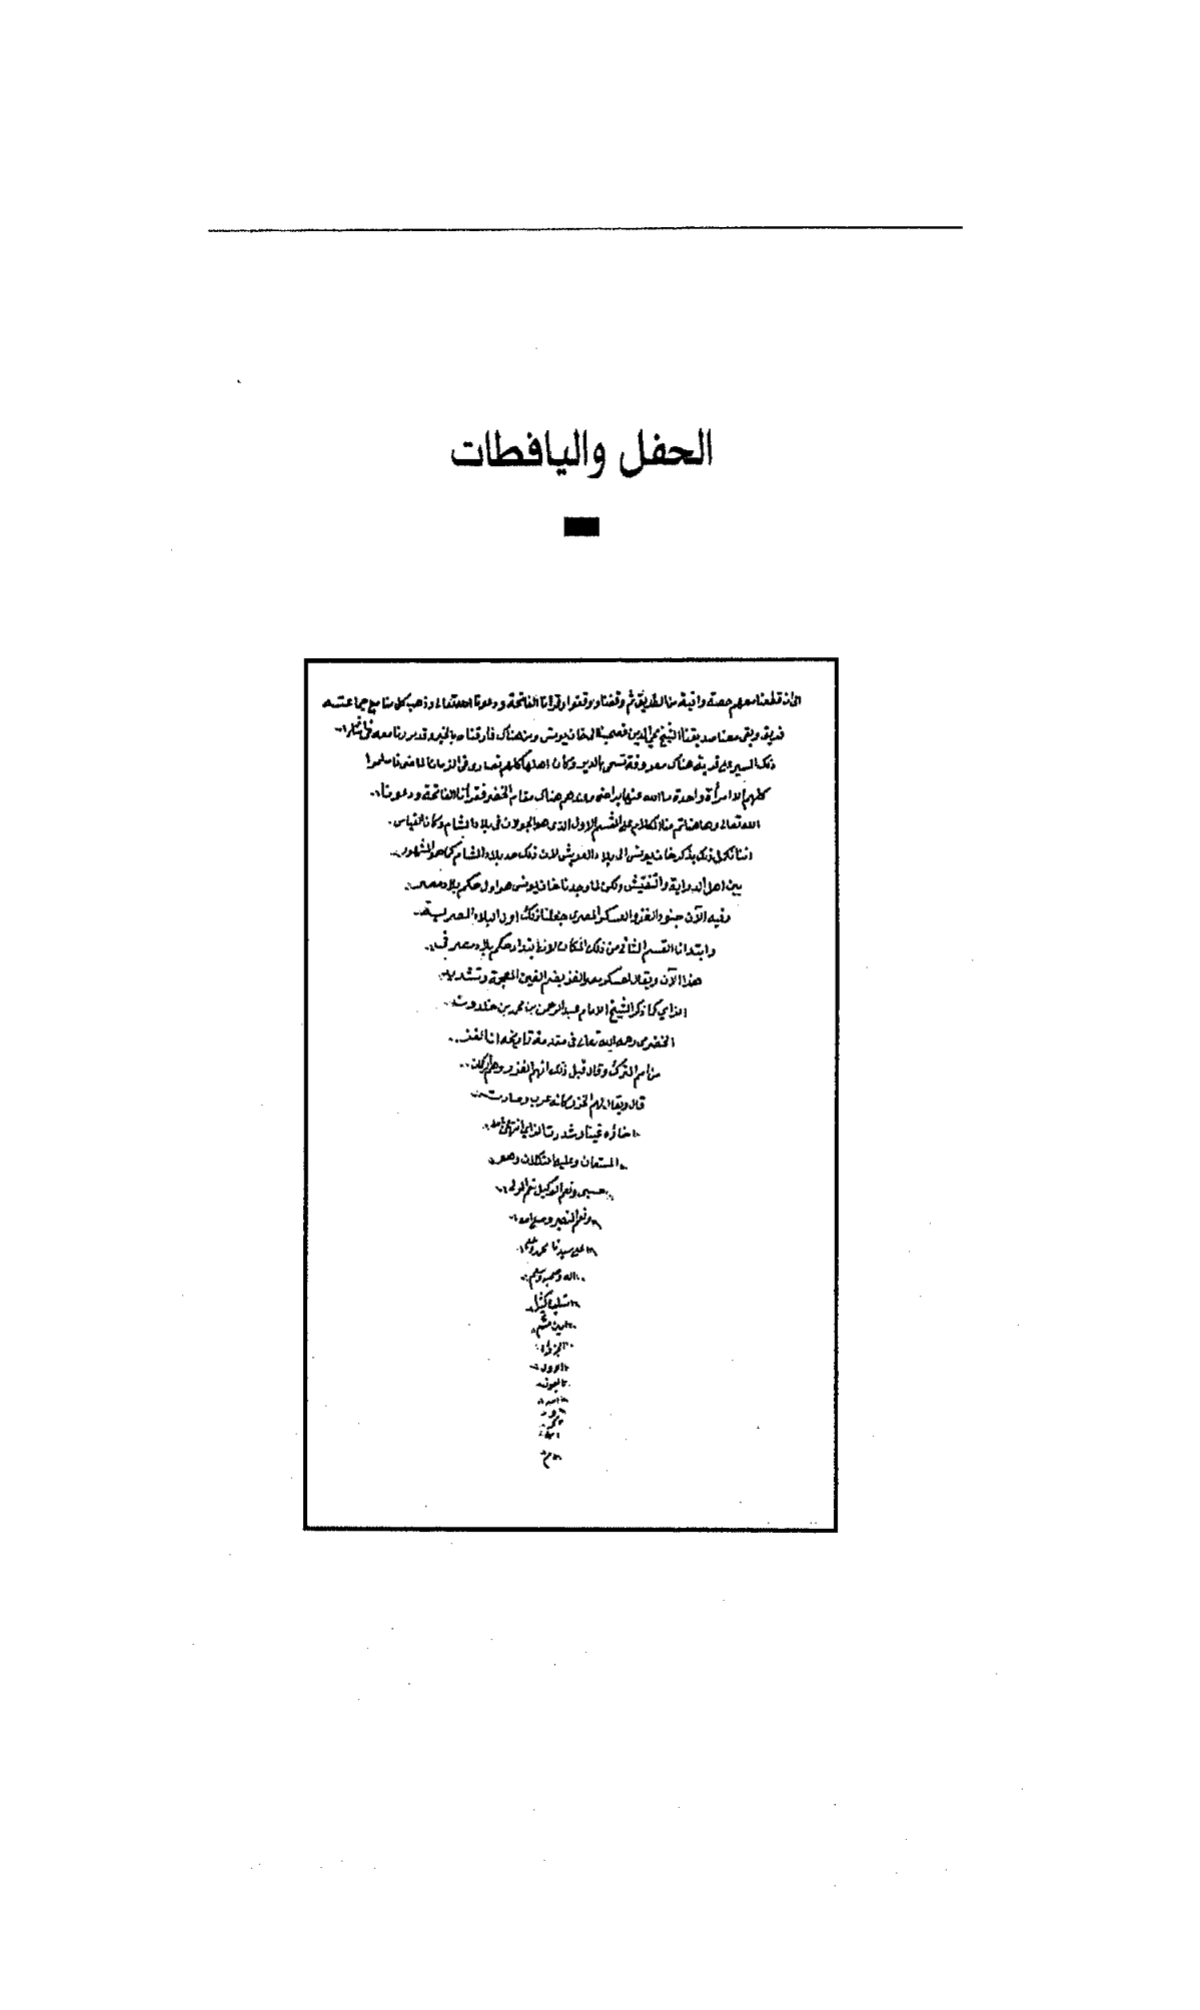 الحفل واليافطات
الى ان قطعنا معهم حصة وافية من الطريق ثم وقفنا ووقفوا وقرأنا الفاتحة ودعونا الله تعالى وذهب كل منا مع جماعته
فريق وبقى معنا صديقنا الشيخ محي الدين فصحبنا الى خان يونس ومن هناك فارقناه بالخير وقد مررنا معه في أثناء
ذلك السير على قرية هناك معروفة تسمى بالدير وكان اهلها كلهم نصارى في الزمان الماضى فاسلموا
كلهم الا امرأة واحدة وعندهم هناك مقام الخضر فقرأنا الفاتحة ودعونا
الله تعالى وهاهنا تم منا الكلام على القسم الاول الذى هو الجولان في بلاد الشام وكان القياس
اننا نكمل ذلك بذكر خان يونس الى بلاد العريش لان ذلك حد بلاد الشام كما هو المشهور
بين اهل الدراية والتفتيش ولكن لما وجدنا خان يونس هو اول حكم بلاد مصر
وفيه الآن جنود الغز والعسكر المصرى جعلنا ذلك اول البلاد المصرية
وابتدانا القسم الثانى من ذلك المكان لانه ابتداء حكم بلاد مصر في
هذا الآن ويقال لعسكر مصر الغز بضم الغين المعجمة وتشديد
الزاي كما ذكر الشيخ الامام عبد الرحمن بن محمد بن خلدون
الحضرمى رحمه الله تعالى في مقدمة تاريخه ان الغز
من امم الترك وقال قبل ذلك انهم الغز وهم
قال ويقال لهم الخزر كانه عرب وصارت
خاؤه غينا وشددت الزاي انتهى والله
المستعان وعليه التكلان وهو
حسبى ونعم الوكيل نعم المولى
ونعم النصير وصلى الله
على سيدنا محمد وعلى
اله وصحبه وسلم
تسليما كثيرا
امين تم
الجزء
الاول
بعون
الله
م